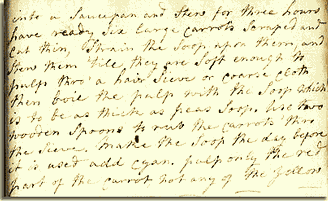 into a Saucepan and Stew for three hours
have ready Six Large Carrots Scraped and
cut thin, Strain the Soop upon them, and
Stew them 'till they are Soft enough to
pulp thro' a hair Sieve or coarse Cloth
then boil the pulp with the Soop which
is to be as thick as peas Soop. Use two
wooden Spoons to rub the Carrots thro'
the Sieve. make the Soop the day before
it is used add cyan. pulp only the red
part of the Carrot not any of the yellow